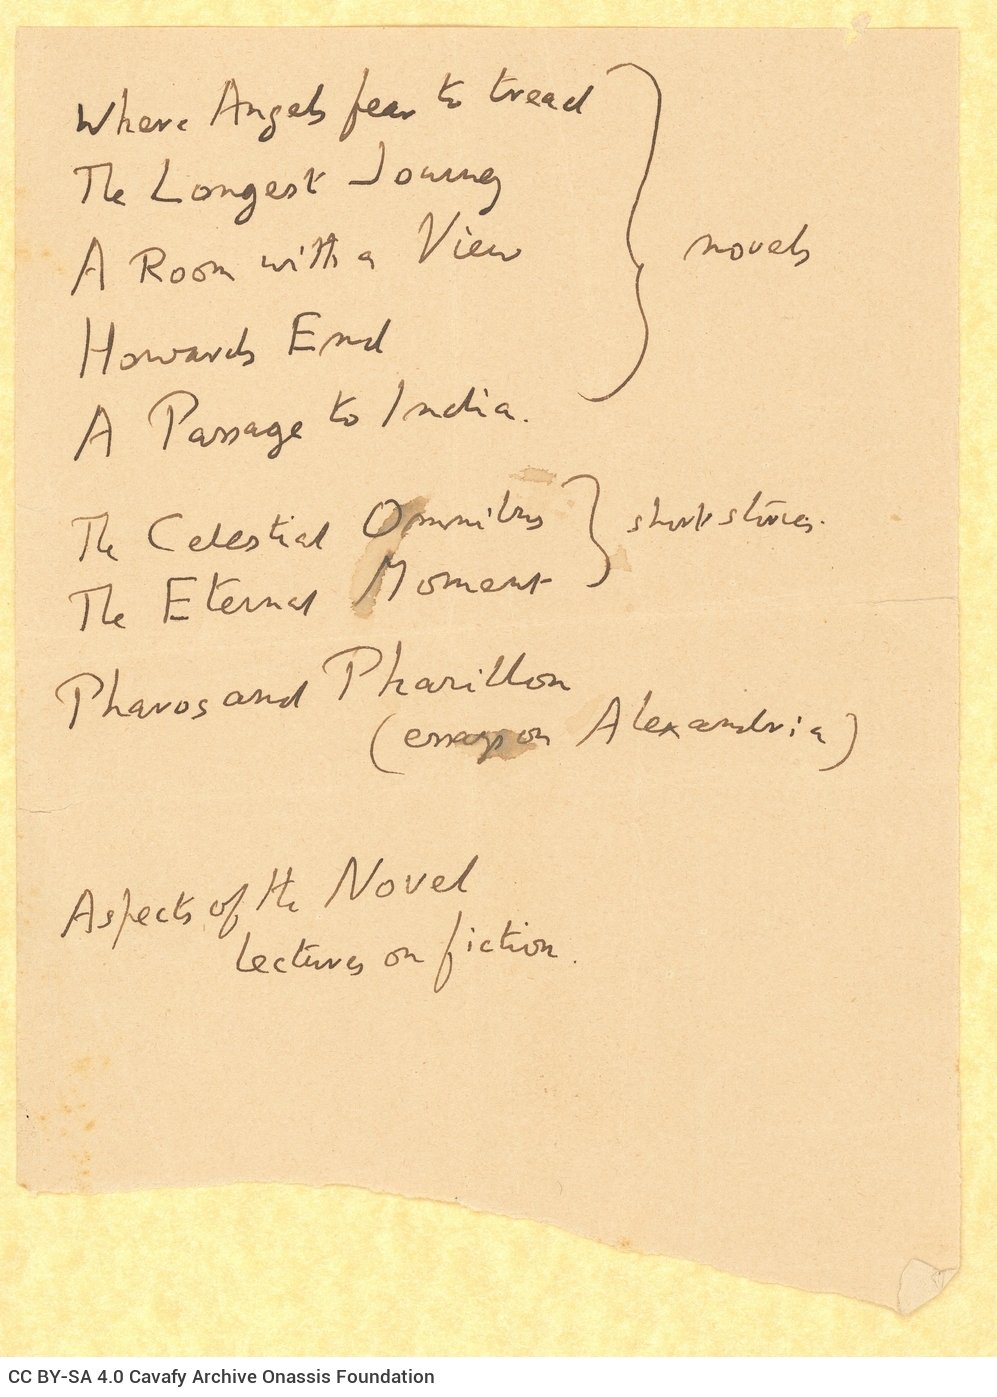 Where Angels fear to tread
The Longest Journey
A Room with a View
novels
Howards End
A Passage to India.
The Celestial Omnibus
short stories.
The Eternal Moment
Pharos and Pharillon
(essays on Alexandria)
Aspects of the Novel
lectures on fiction.
CC BY-SA 4.0 Cavafy Archive Onassis Foundation